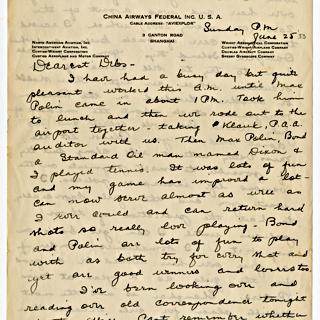 CHINA AIRWAYS FEDERAL INC. U. S. A.
CABLE ADDRESS: "AVIEXPLOR"
3 CANTON ROAD
SHANGHAI
NORTH AMERICAN AVIATION, INC.
INTERCONTINENT AVIATION, INC.
CURTISS-WRIGHT CORPORATION
CURTISS AEROPLANE AND MOTOR COMPANY
WRIGHT AERONAUTICAL CORPORATION
CURTISS-WRIGHT AIRPLANE COMPANY
DOUGLAS AIRCRAFT COMPANY
SPERRY GYROSCOPE COMPANY
Sunday P.M.
June 25
Dearest Debs-
I have had a busy day but quite
pleasant - worked this A.M. until Mac
Polin came in about 1 P.M. Took him
to lunch and then we rode out to the
airport together - taking Klauk, P.A.A.
auditor with us. Then Mac Polin, Bond
a Standard Oil man named Dixon &
I played tennis. It was lots of fun
and my game has improved a lot -
can now serve almost as well as
I ever could and can return hard
shots so really love playing - Bond
and Polin are lots of fun to play
with as both try for every shot and
yet are good winners and losers too.
I've been looking over and
reading over old correspondence tonight
remember whether